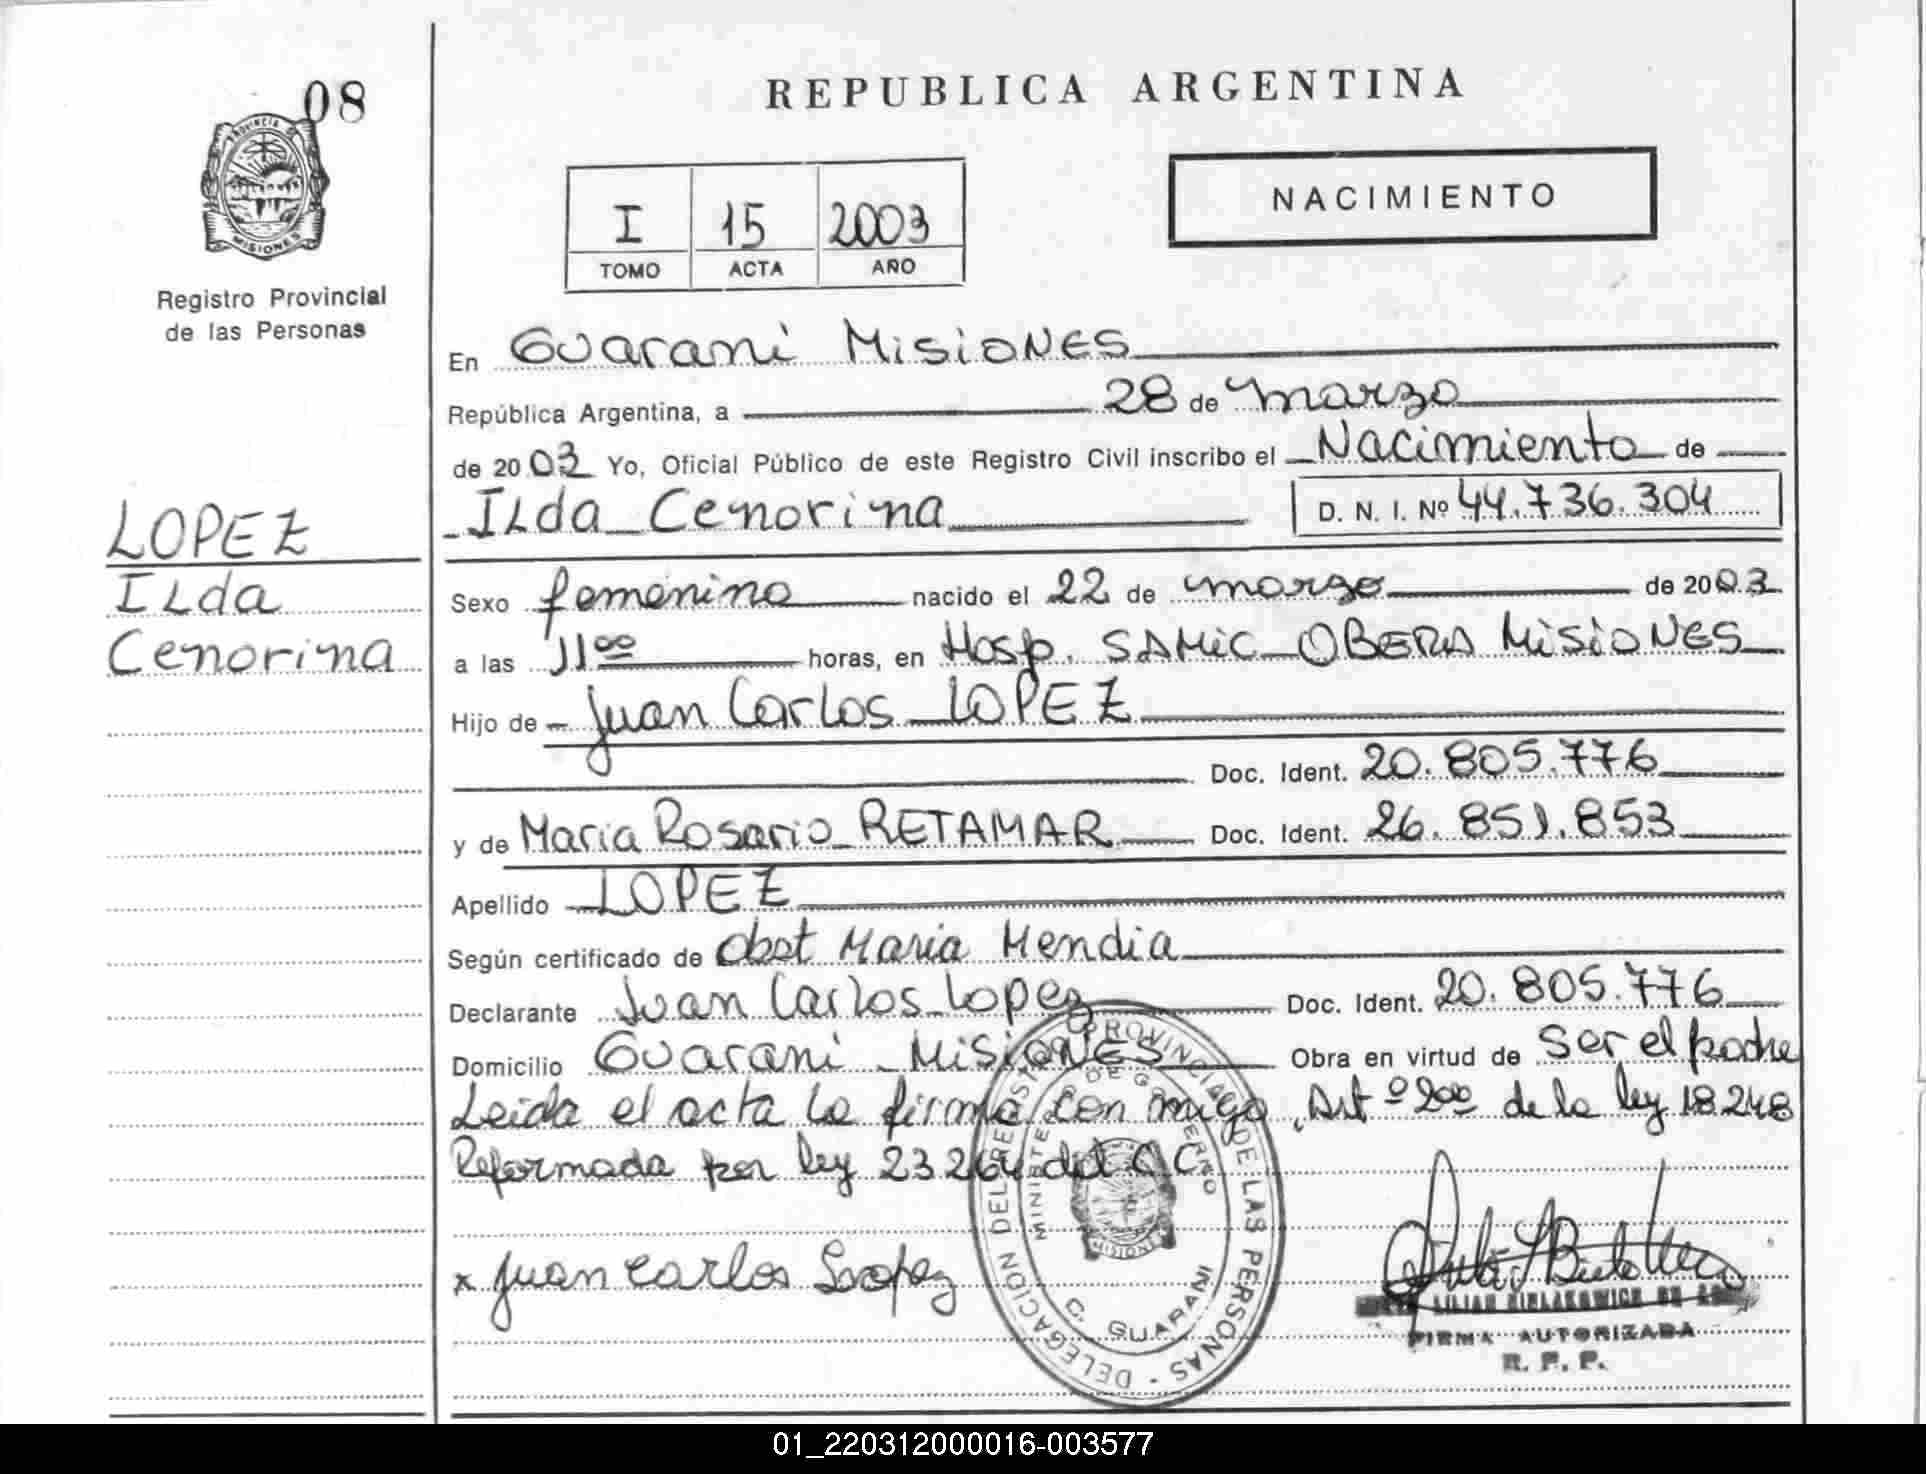 08
PROVINCIA DE
MISIONES
Registro Provincial
de las Personas
LOPEZ
ILda
Cenorina
REPUBLICA ARGENTINA
I 15 2003
TOMO ACTA AÑO
NACIMIENTO
En Guarani Misiones
República Argentina, a 28 de marzo
de 2003 Yo, Oficial Público de este Registro Civil inscribo el Nacimiento de
ILda Cenorina D. N. I. Nº 44.736.304
Sexo femenino nacido el 22 de marzo de 2003
a las 11⁰⁰ horas, en Hosp. SAMIC OBERA MISIONES
Hijo de Juan Carlos LOPEZ
Doc. Ident. 20.805.776
y de Maria Rosario RETAMAR Doc. Ident. 26.851.853
Apellido LOPEZ
Según certificado de Obst Maria Mendia
Declarante Juan Carlos Lopez Doc. Ident. 20.805.776
Domicilio Guarani Misiones Obra en virtud de Ser el padre
Leida el acta la firma con migo, Art º 2⁰⁰ de la ley 18248
Reformada por ley 23264 del C C
x Juan carlos Lopez
DELEGACIÓN DEL REGISTRO PROVINCIAL DE LAS PERSONAS - DELEGACIÓN
MINISTERIO DE GOBIERNO
MISIONES
C. GUARANI
LILIAN
FIRMA AUTORIZADA
R. P. P.
01_220312000016-003577